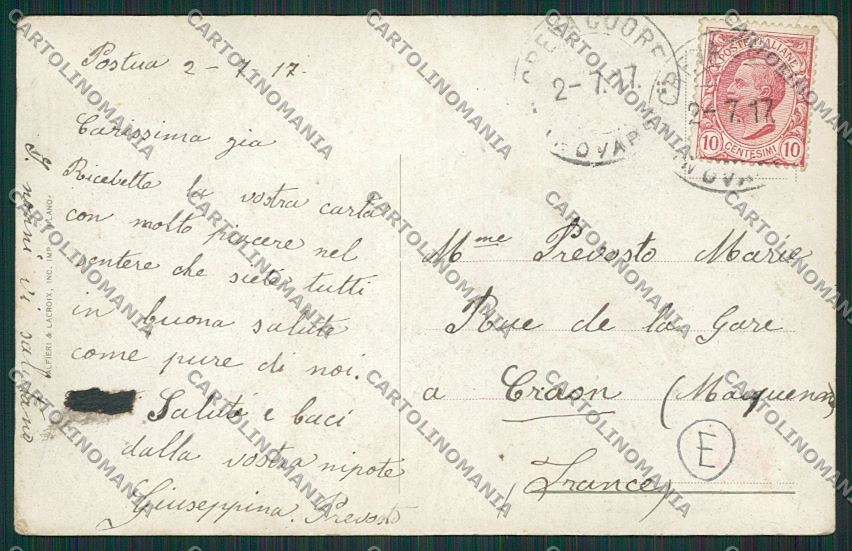 Postua 2-7-17.
Carissima zia
Ricebette la vostra carta
con molto piacere nel
sentere che siete tutti
in buona salute
come pure di noi.
Saluti e baci
dalla vostra nipote
Giuseppina Prevosto
I nonni vi salutano
ALFIERI & LACROIX, INC. IMP. MILANO
CREVACUORE
2-7.17.
NOVARA
CREVACUORE
2-7.17
NOVARA
POSTE ITALIANE
10 CENTESIMI 10
Mme Prevosto Marie
Rue de la Gare
a Craon (Mayenne)
(France)
E
CARTOLINOMANIA